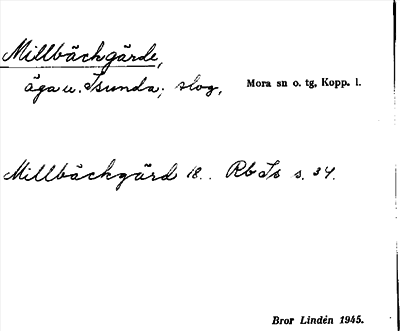 Millbäckgärde,
äga u. Isunda; slog, Mora sn o. tg, Kopp. l.
Millbäckgärd 18.. Rb Is s. 34.
Bror Lindén 1945.